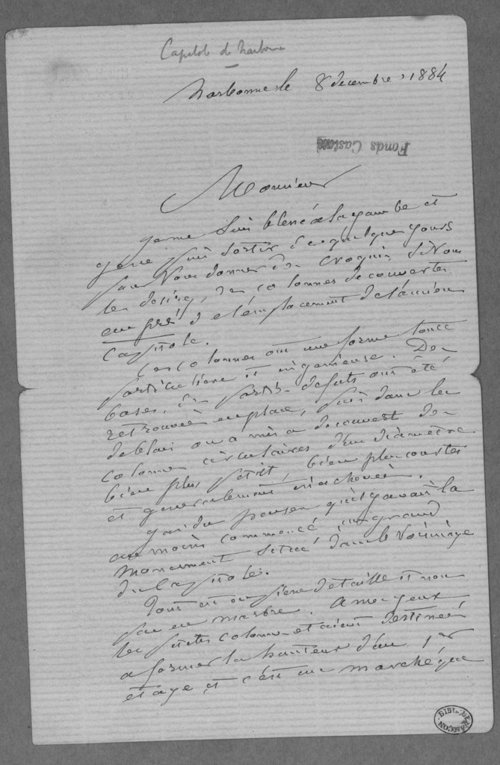 Capitole de Narbonne
Narbonne le 8 décembre 1884
Fonds Castan
Monsieur
je me suis blessé à la jambe et
je ne puis sortir de quelques jours
pour vous donner des croquis si vous
les désirez, des colonnes découvertes
auprès de l'emplacement de l'ancien
Capitole.
Ces colonnes ont une forme toute
particulière et ingénieuse. Des
bases, des parties de fûts ont été
retrouvées en place, puis dans les
déblais on a mis à découvert des
colonnes circulaires d'un diamètre
bien plus petit, bien plus courtes
et généralement inachevées.
j'ai du penser qu'il y avait là
au moins commencé un grand
monument situé dans le voisinage
du Capitole.
Tout est en pierre de taille et non
pas en marbre. A mes yeux
les petites colonnes étaient destinées
a former la hauteur d'un 1er
étage et c'est un marché que